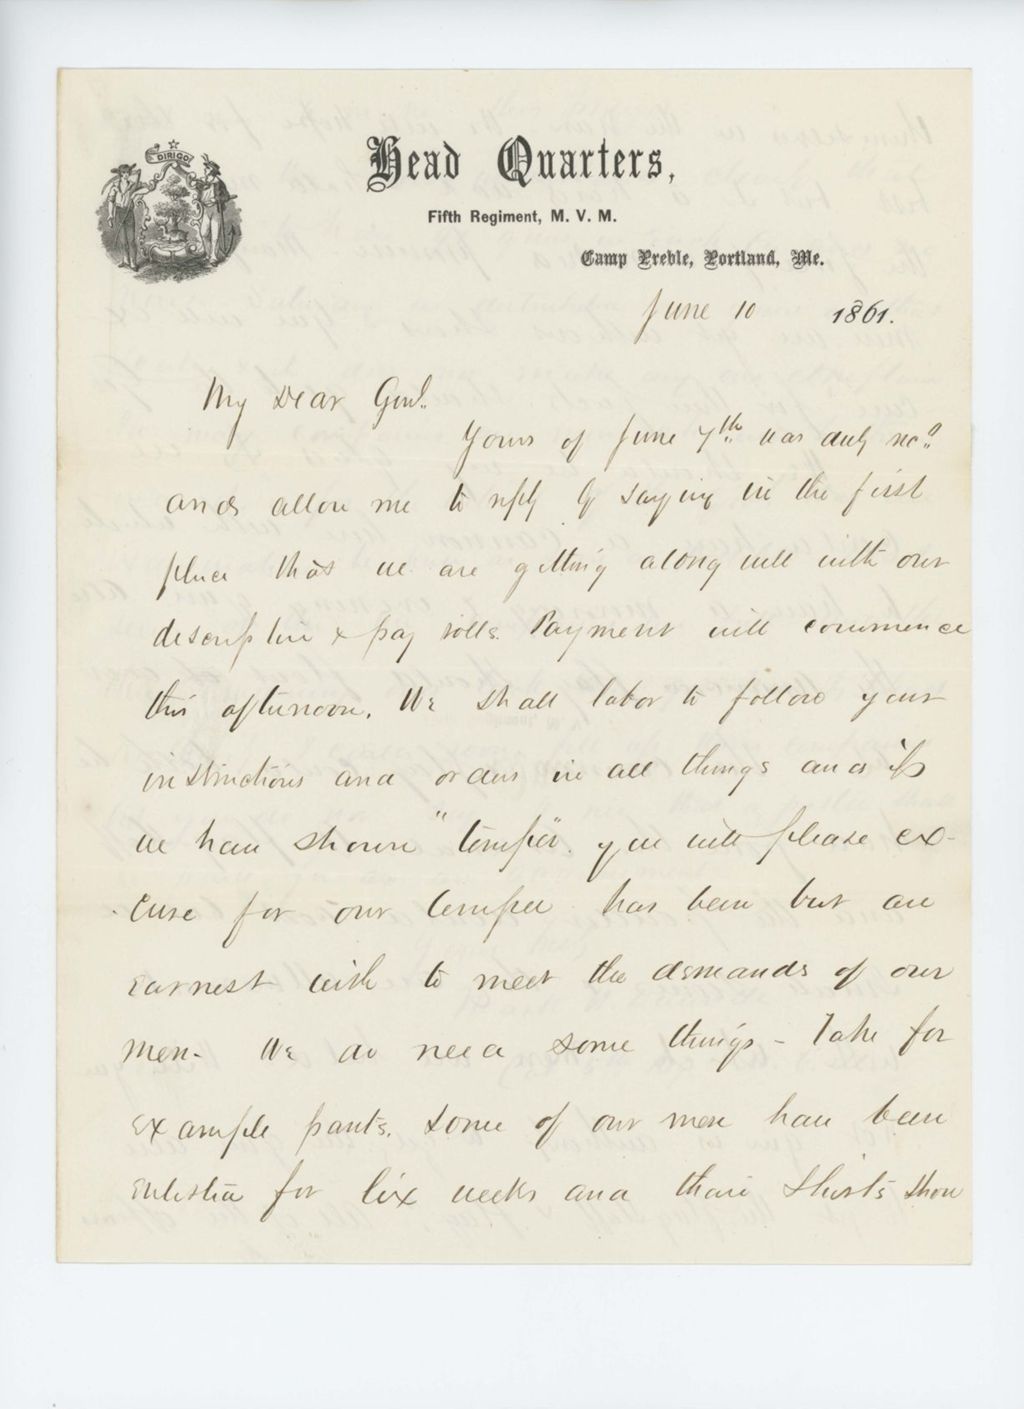 DIRIGO
Head Quarters,
Fifth Regiment, M. V. M.
Camp Preble, Portland, Me.
June 10 1861.
My Dear Genl.
Yours of June 7th was duly recd
and allow me to reply by saying in the first
place that we are getting along well with our
descriptive & pay rolls. Payment will commence
this afternoon. We shall labor to follow your
instructions and orders in all things and if
we have shown "temper" you will please ex-
cuse for our temper has been but an
earnest wish to meet the demands of our
men. We do need some things - Take for
example pants. Some of our men have been
enlisted for six weeks and their shirts show